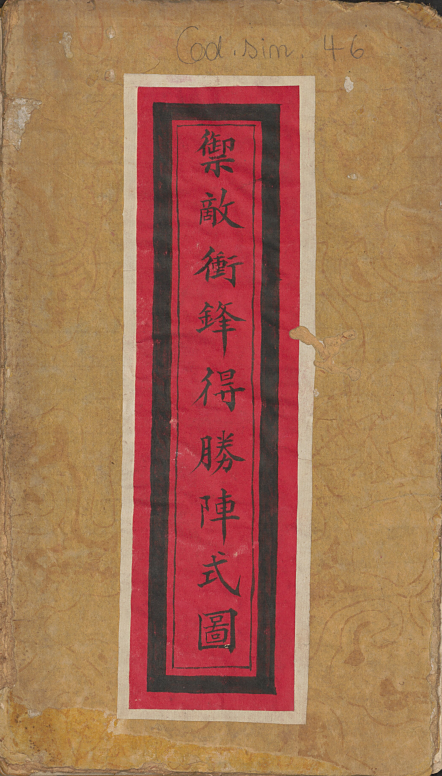 Cod. sin. 46
禦敵衝鋒得勝陣式圖